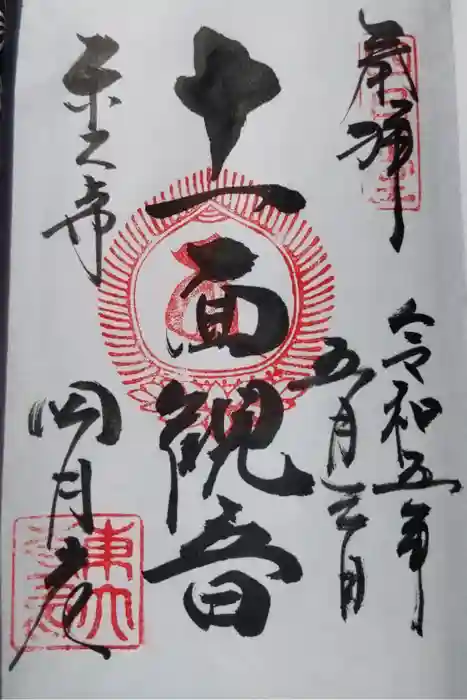 奉拝
令和五年
五月三日
十一面観音
東大寺
四月堂